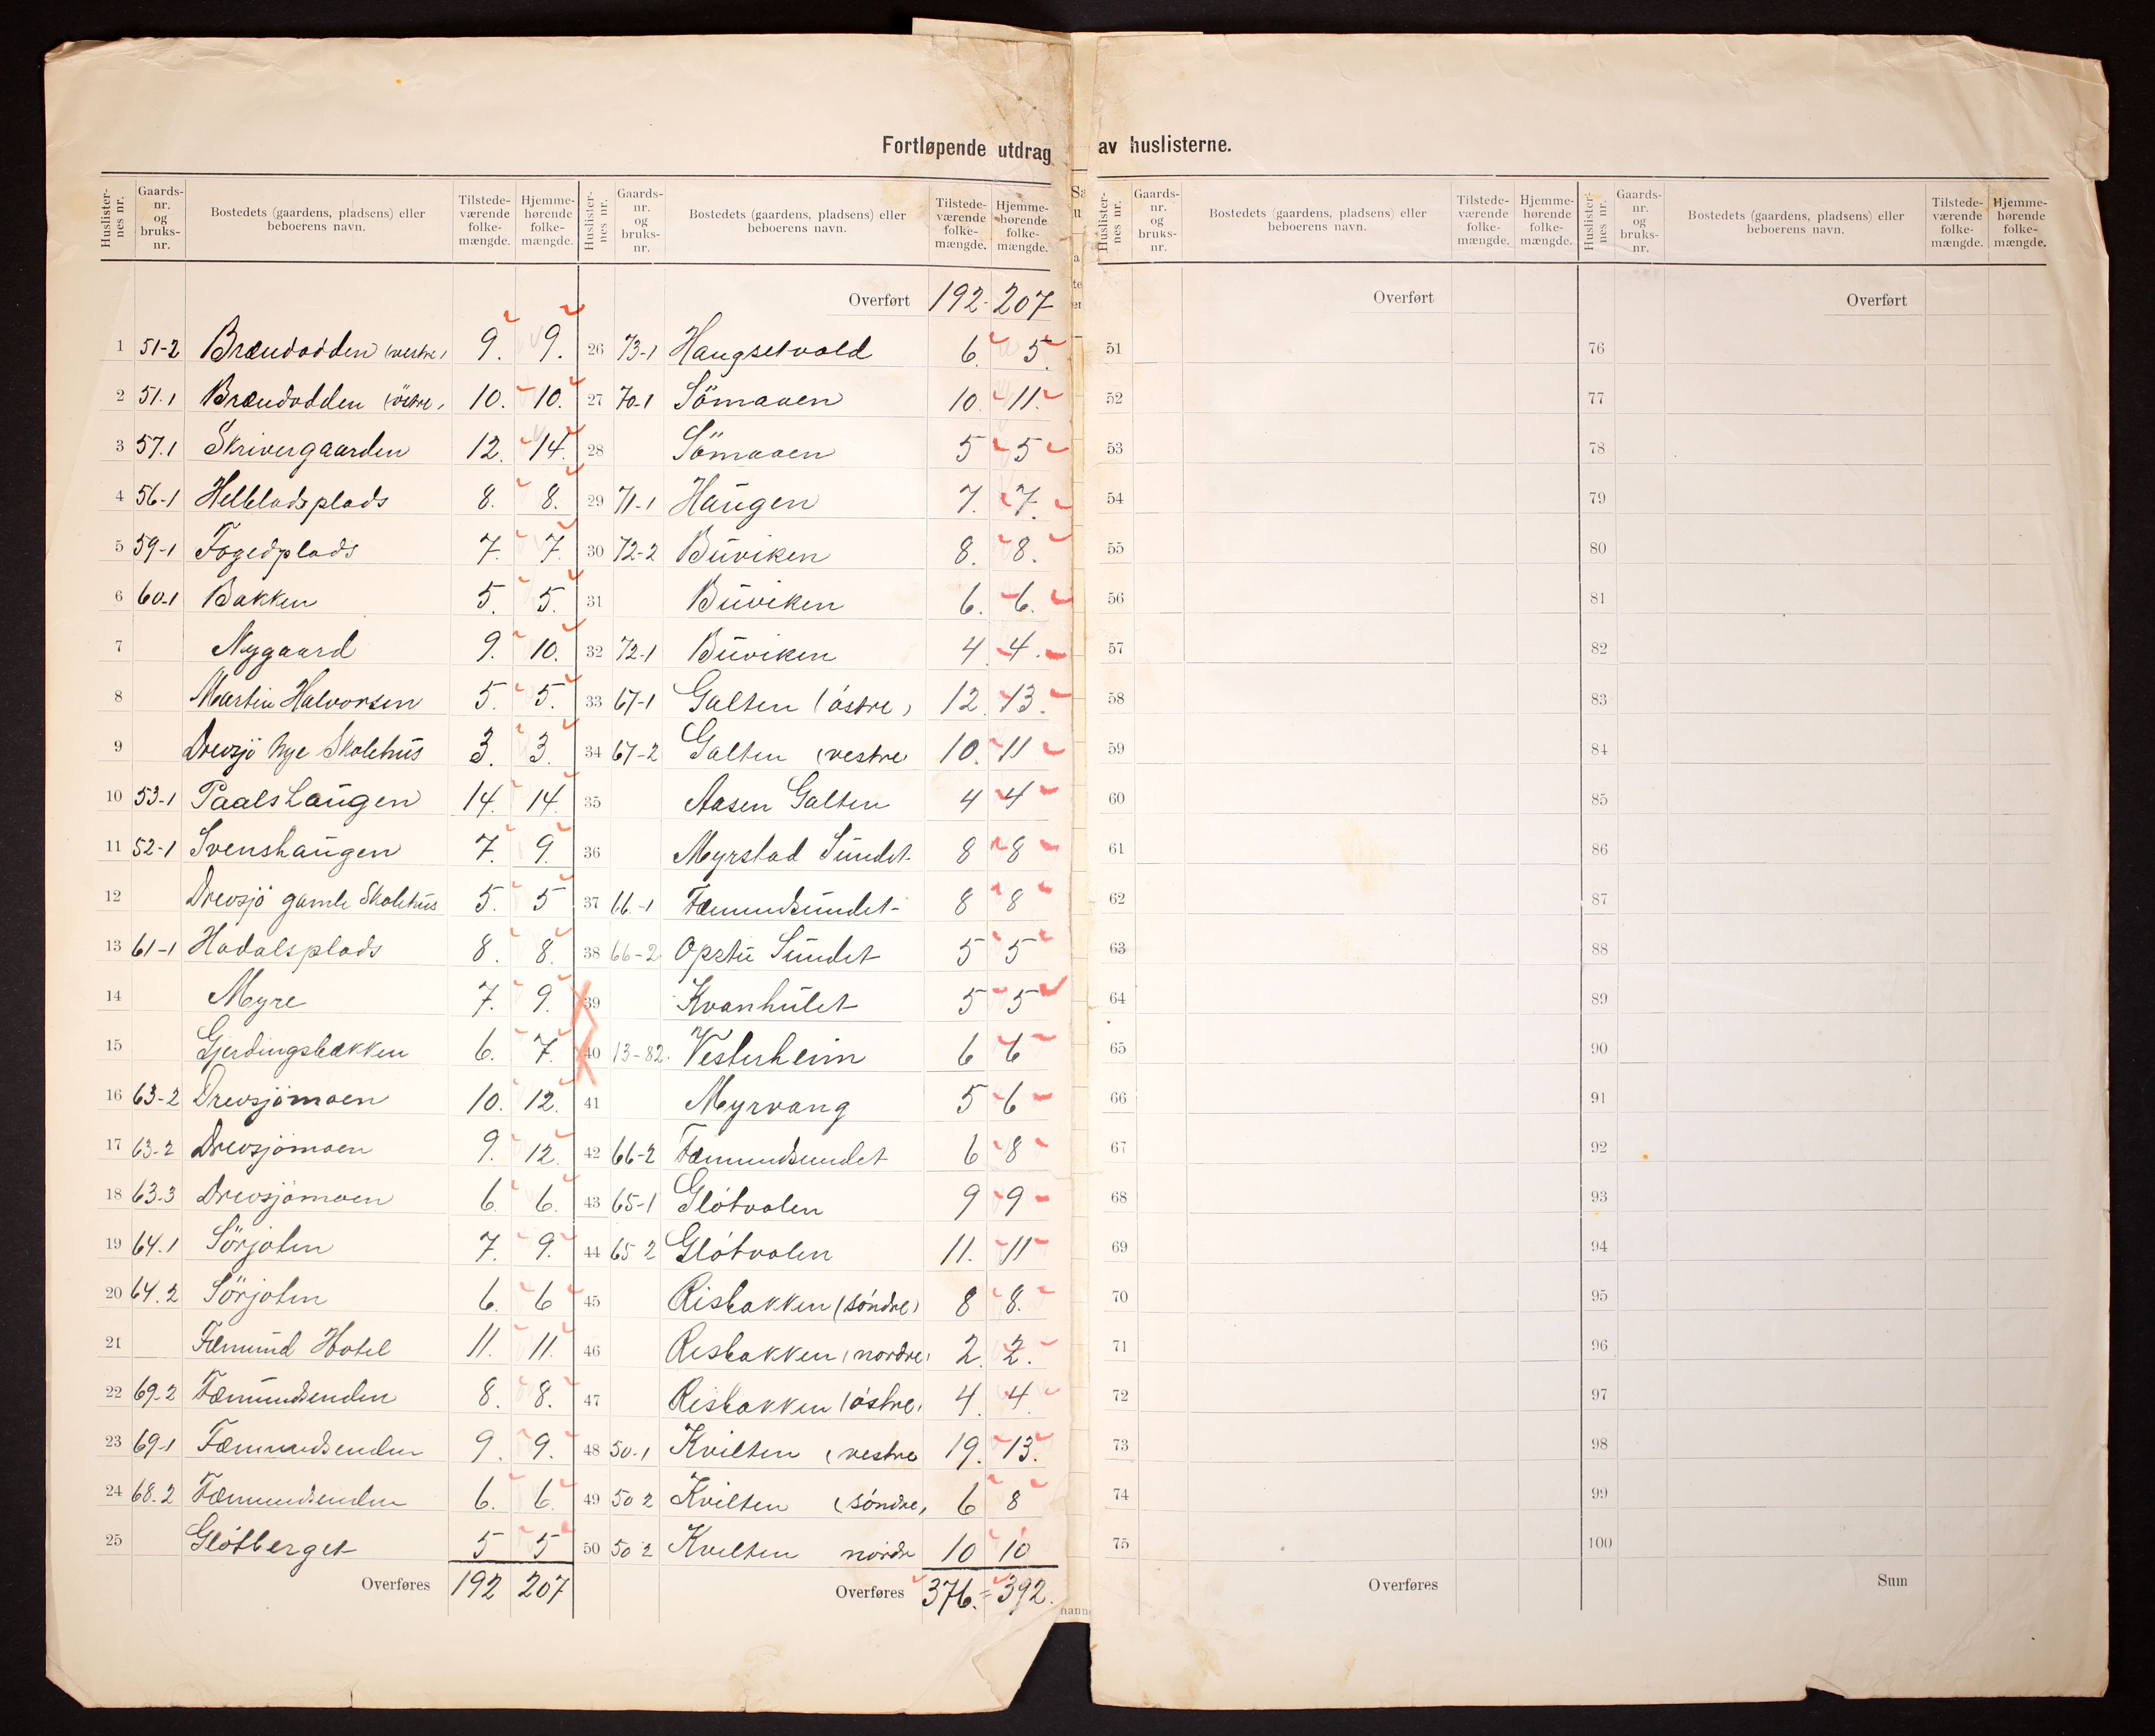 Fortløpende utdrag av huslisterne.
Huslister-nes nr. Gaards-nr. og bruks-nr. Bostedets (gaardens, pladsens) eller beboerens navn. Tilstede-værende folke-mængde. Hjemme-hørende folke-mængde.
1 51-2 Brændodden (vestre) 9. 9.
2 51.1 Brændodden (östre) 10. 10.
3 57.1 Skrivergaarden 12. 14.
4 56-1 Helbladsplads 8. 8.
5 59-1 Fogedplads 7. 7.
6 60-1 Bakken 5. 5.
7 Nygaard 9. 10.
8 Martin Halvorsen 5. 5.
9 Drevsjö Nye Skolehus 3. 3.
10 53-1 Paalshaugen 14. 14.
11 52-1 Svenshaugen 7. 9.
12 Drevsjö gamle Skolehus 5. 5
13 61-1 Hadalsplads 8. 8.
14 Myre 7. 9.
15 Gjerdingsbakken 6. 7.
16 63-2 Drevsjömoen 10. 12.
17 63-2 Drevsjömoen 9. 12.
18 63-3 Drevsjömoen 6. 6.
19 64.1 Sörjoten 7. 9.
20 64.2 Sörjoten 6. 6
21 Fæmund Hotel 11. 11.
22 69-2 Fæmundsenden 8. 8.
23 69-1 Fæmundsenden 9. 9.
24 68.2 Fæmundsenden 6. 6.
25 Glötberget 5 5
Overføres 192 207
Huslister-nes nr. Gaards-nr. og bruks-nr. Bostedets (gaardens, pladsens) eller beboerens navn. Tilstede-værende folke-mængde. Hjemme-hørende folke-mængde.
Overført 192. 207
26 73-1 Haugsetvold 6. 5.
27 70-1 Sömaaen 10. 11.
28 Sömaaen 5 5
29 71-1 Haugen 7. 7.
30 72-2 Buviken 8. 8.
31 Buviken 6. 6.
32 72-1 Buviken 4. 4.
33 67-1 Galten (östre) 12. 13.
34 67-2 Galten (vestre 10. 11
35 Aasen Galten 4 4
36 Myrstad Sundet 8 8
37 66-1 Fæmundsundet 8 8
38 66-2 Opstu Sundet 5 5
39 Kvanhulet 5 5
40 13-82. Vesterheim 6 6
41 Myrvang 5 6
42 66-2 Fæmundsundet 6 8
43 65-1 Glötvolen 9 9
44 65 2 Glötvolen 11. 11
45 Risbakken (söndre) 8 8.
46 Risbakken (nordre) 2. 2.
47 Risbakken (östre) 4. 4.
48 50-1 Kvilten (vestre 19. 13.
49 50 2 Kvilten (söndre) 6 8
50 50 2 Kvilten nordr 10 10
Overføres 376. = 392.
Huslister-nes nr. Gaards-nr. og bruks-nr. Bostedets (gaardens, pladsens) eller beboerens navn. Tilstede-værende folke-mængde. Hjemme-hørende folke-mængde.
Overført
51
52
53
54
55
56
57
58
59
60
61
62
63
64
65
66
67
68
69
70
71
72
73
74
75
Overføres
Huslister-nes nr. Gaards-nr. og bruks-nr. Bostedets (gaardens, pladsens) eller beboerens navn. Tilstede-værende folke-mængde. Hjemme-hørende folke-mængde.
Overført
76
77
78
79
80
81
82
83
84
85
86
87
88
89
90
91
92
93
94
95
96
97
98
99
100
Sum